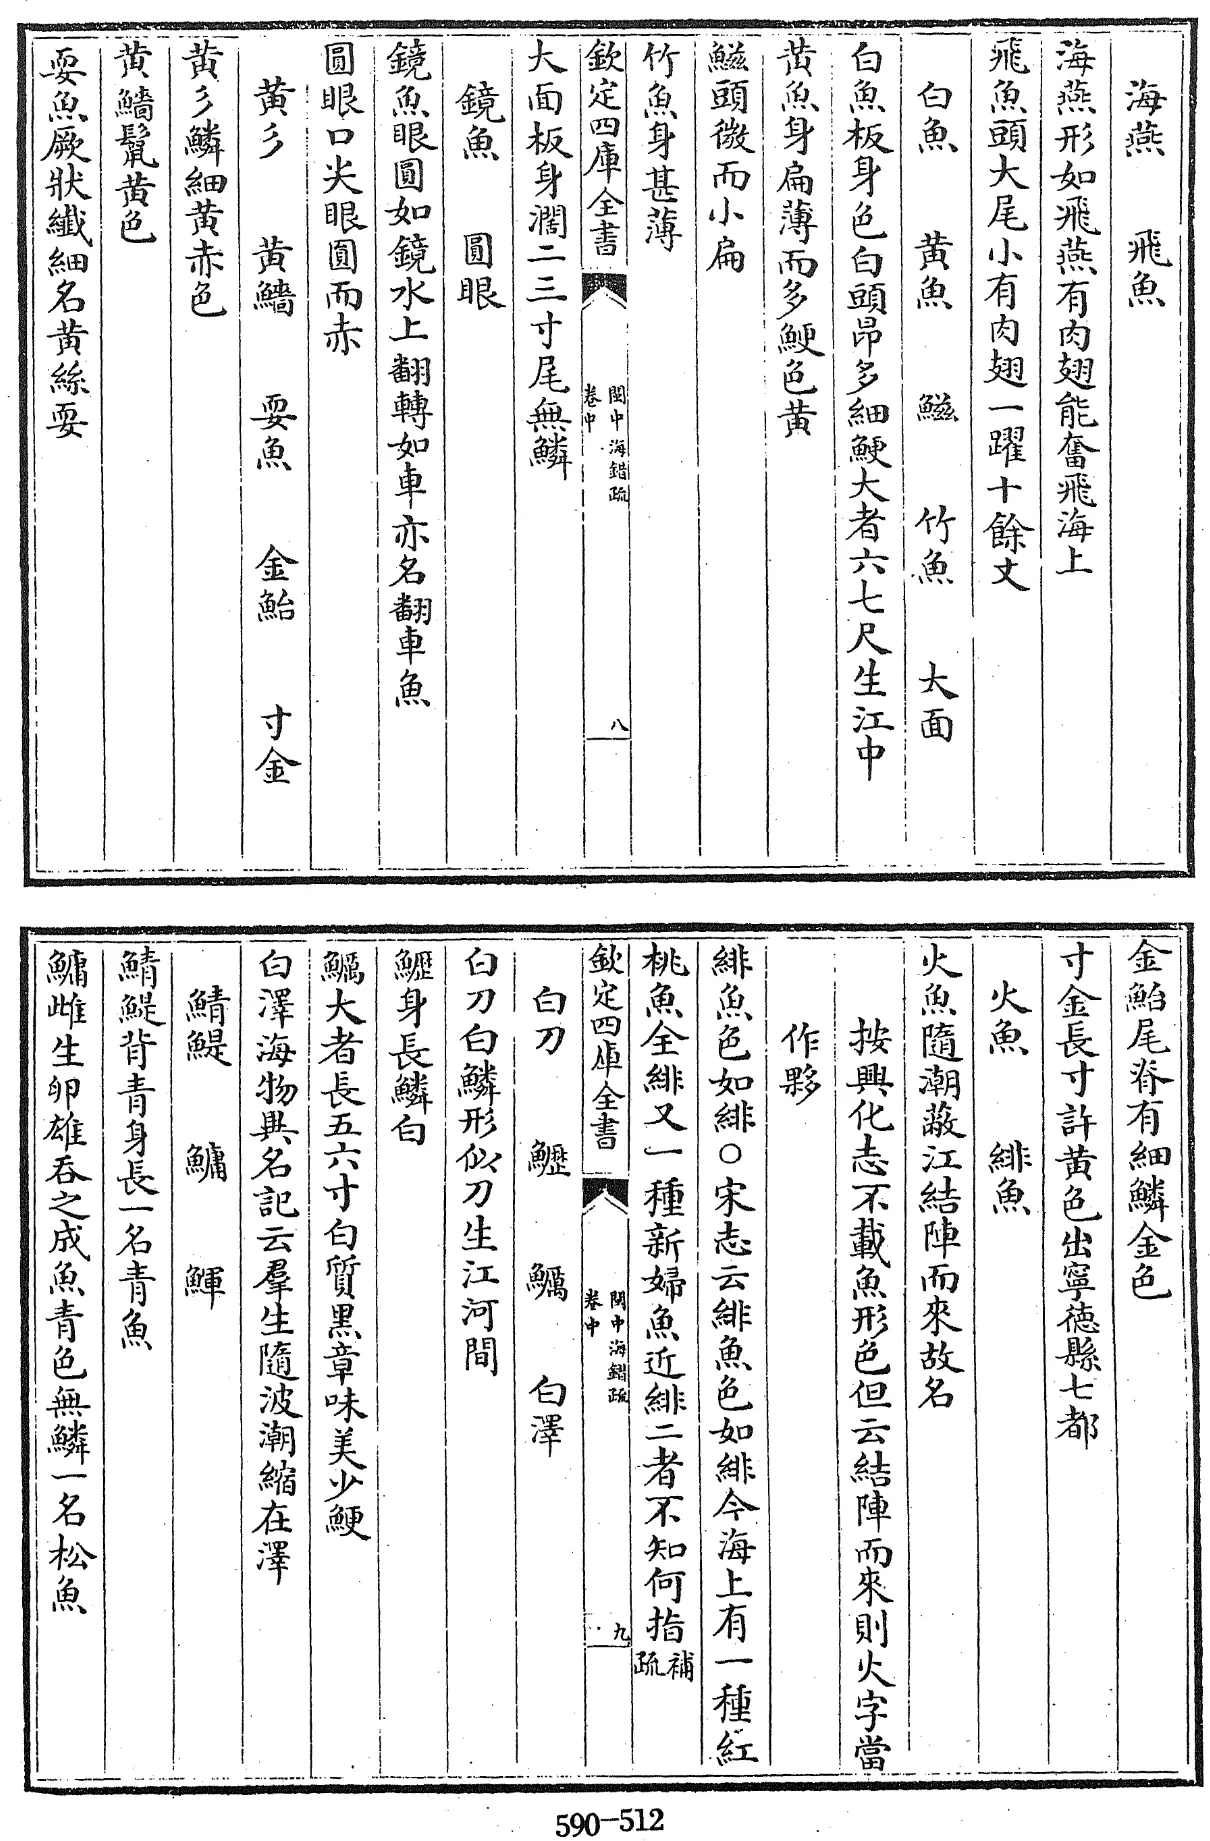 海燕　飛魚
海燕形如飛燕有肉翅能奮飛海上
飛魚頭大尾小有肉翅一躍十餘丈
白魚　黄魚　鰦　竹魚　大面
白魚板身色白頭昂多細鯁大者六七尺生江中
黄魚身扁薄而多鯁色黄
鰦頭微而小扁
竹魚身甚薄
欽定四庫全書
閩中海錯疏
卷中
八
大面板身濶二三寸尾無鱗
鏡魚　圓眼
鏡魚眼圓如鏡水上翻轉如車亦名翻車魚
圓眼口尖眼圓而赤
黄彡　黄鱛　耍魚　金鮐　寸金
黄彡鱗細黄赤色
黄鱛鬛黄色
耍魚厥狀纎細名黄絲耍
金鮐尾脊有細鱗金色
寸金長寸許黄色出寧徳縣七都
火魚　緋魚
火魚隨潮蔽江結陣而來故名
按興化志不載魚形色但云結陣而來則火字當
作夥
緋魚色如緋○宋志云緋魚色如緋今海上有一種紅
桃魚全緋又一種新婦魚近緋二者不知何指補疏
欽定四庫全書
閩中海錯疏
卷中
九
白刀　鱺　鱱　白澤
白刀白鱗形似刀生江河間
身長鱗白
大者長五六寸白質黑章味美少鯁
白澤海物異名記云羣生隨波潮縮在澤
鯖鯷　鱅　鯶
鯖鯷背青身長一名青魚
鱅雌生卵雄吞之成魚青色無鱗一名松魚
590-512